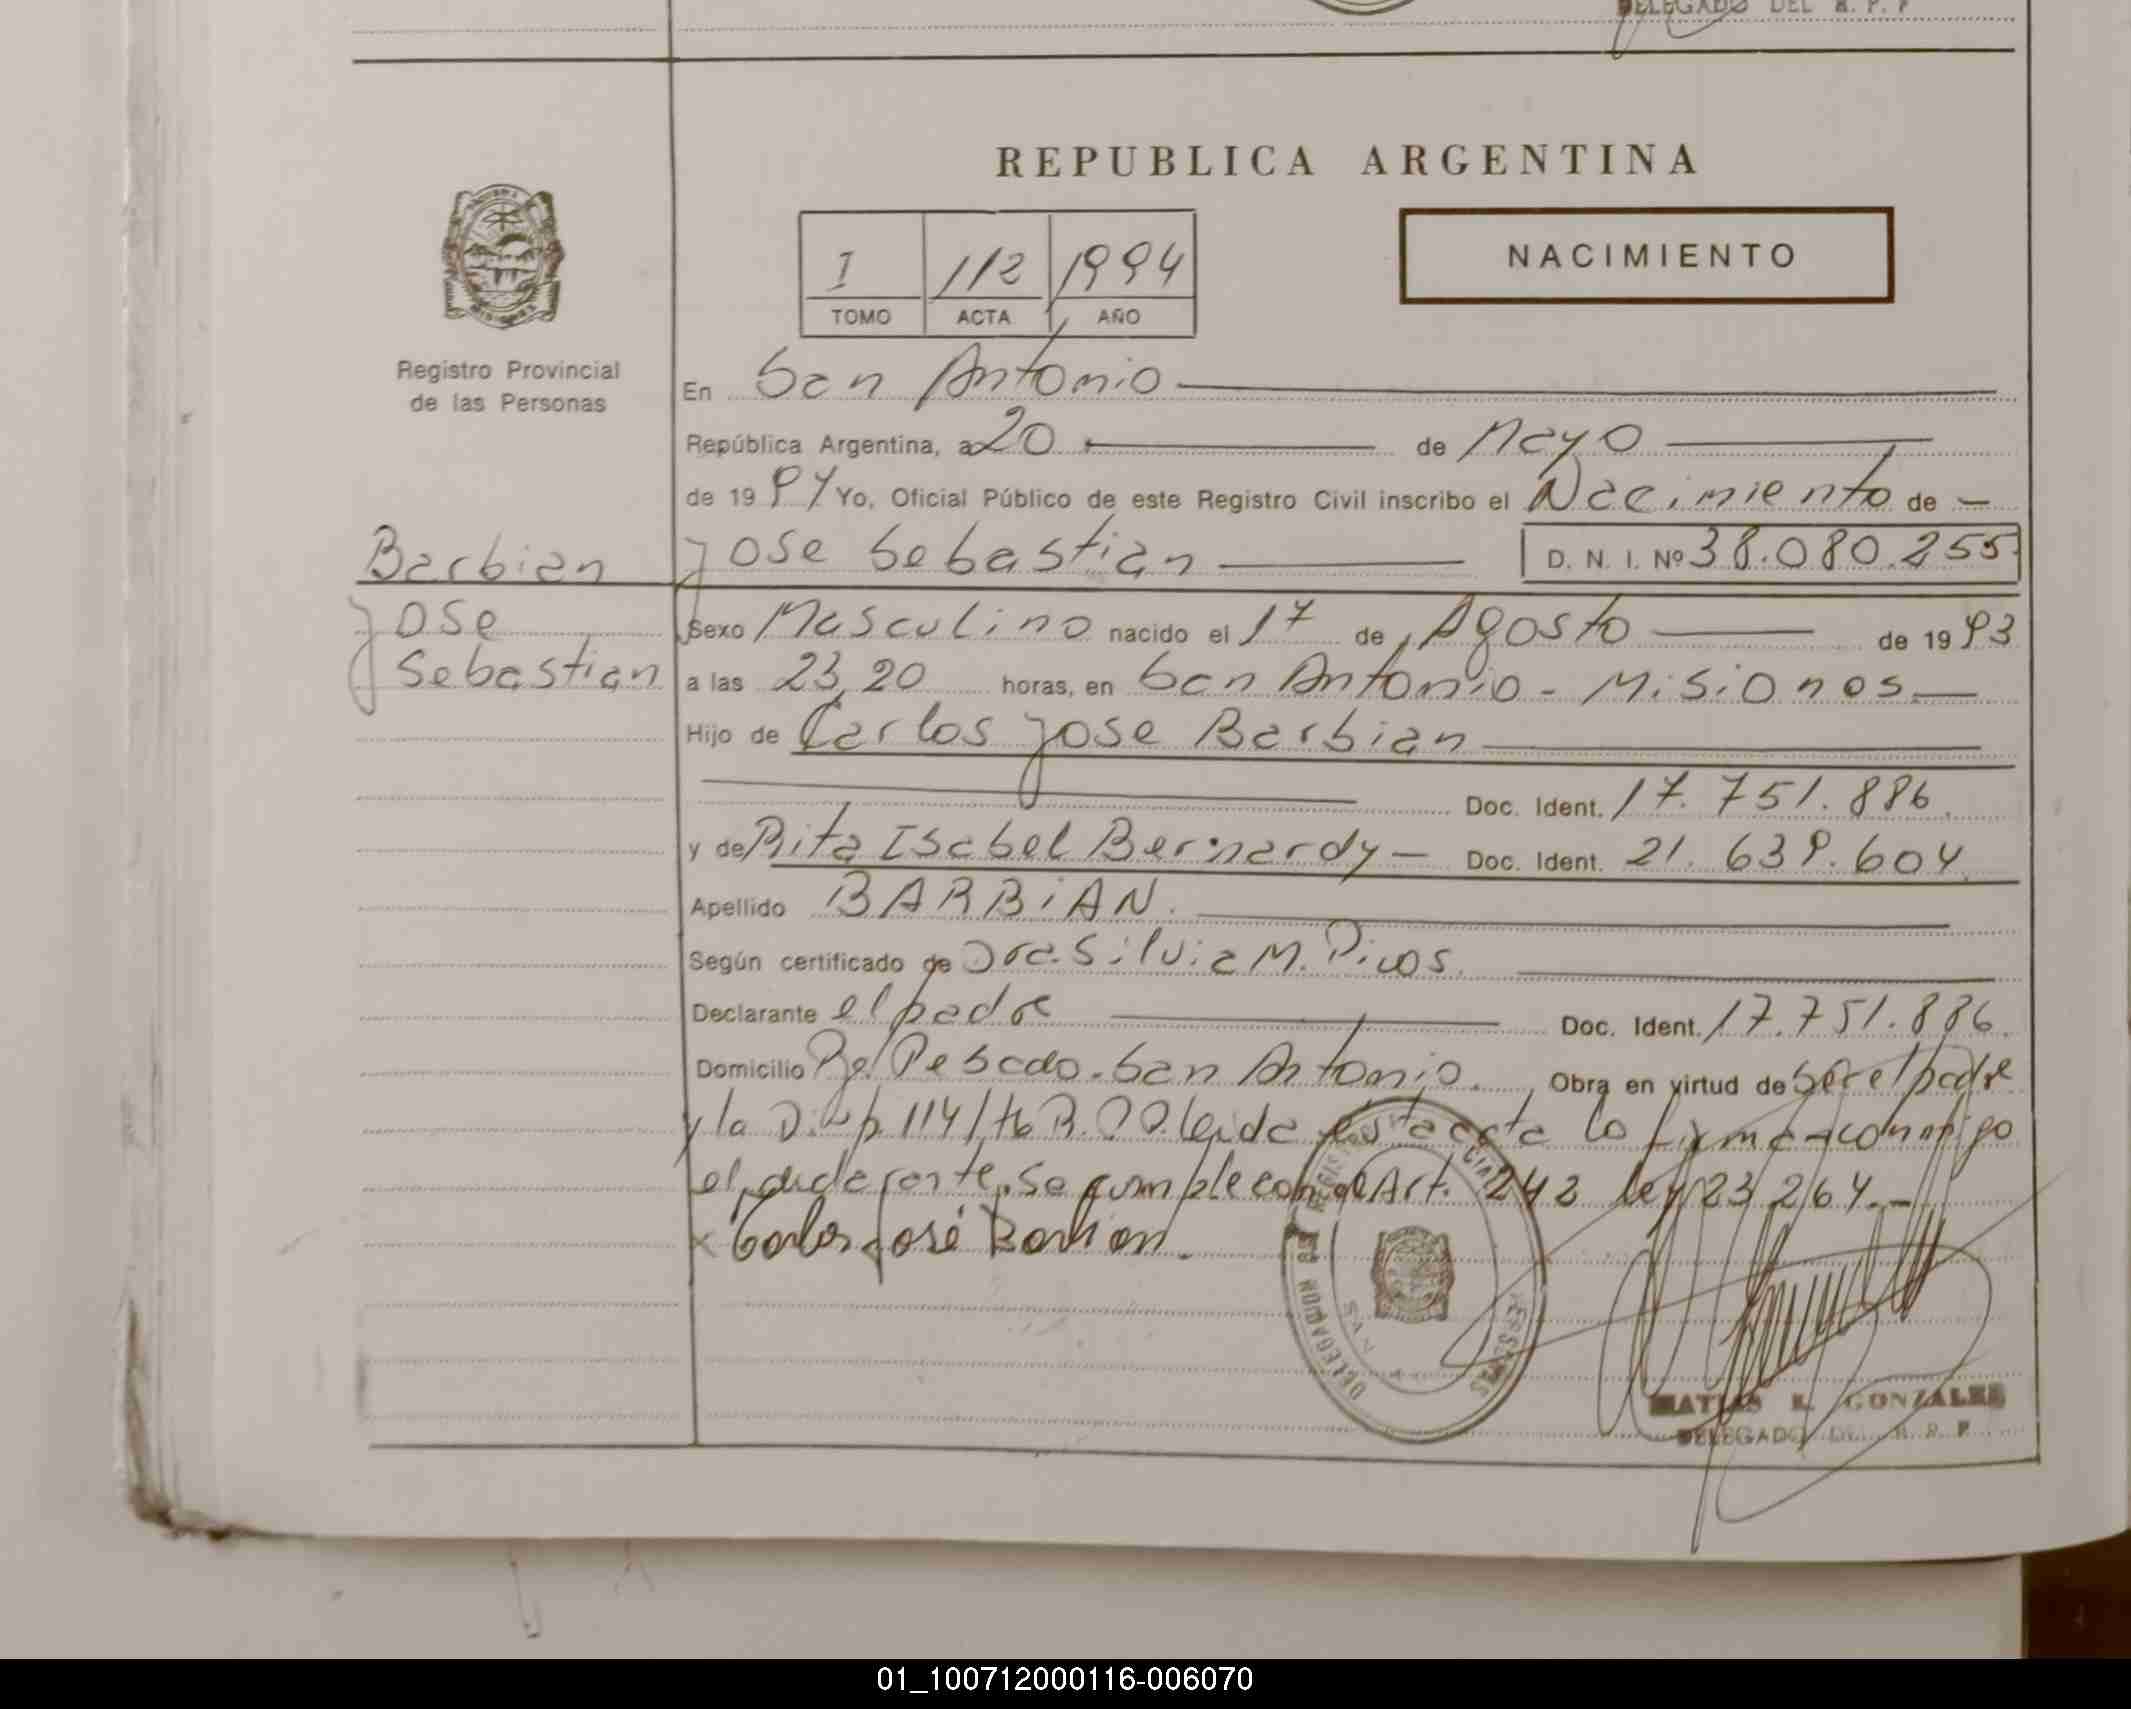 DELEGADO DEL R. P. P
REPUBLICA ARGENTINA
NACIMIENTO
I 112 1994
TOMO ACTA AÑO
Registro Provincial
de las Personas
En San Antonio
República Argentina, a 20 de Mayo
de 1994 Yo, Oficial Público de este Registro Civil inscribo el Nacimiento de
Barbian Jose Sebastian D. N. I. Nº 38.080.255
Jose
Sebastian
Sexo Masculino nacido el 17 de Agosto de 1993
a las 23,20 horas, en San Antonio - Misiones
Hijo de Carlos Jose Barbian
Doc. Ident. 17.751.886.
y de Rita Isabel Bernardy - Doc. Ident. 21.639.604
Apellido BARBIAN.
Según certificado de Dra. Silvia M. Pivos.
Declarante el padre Doc. Ident. 17.751.886.
Domicilio Pesado - San Antonio. Obra en virtud de ser el padre
y la Disp. 114/ leida esta acta la firma conmigo
el declarante. Se cumple con el Art. 242 ley 23264.-
x Carlos José Barbian.
DELEGACION REGISTRO CIVIL PERSONAS
SAN
MATIAS R. GONZALEZ
DELEGADO DEL R. P. P
01_100712000116-006070